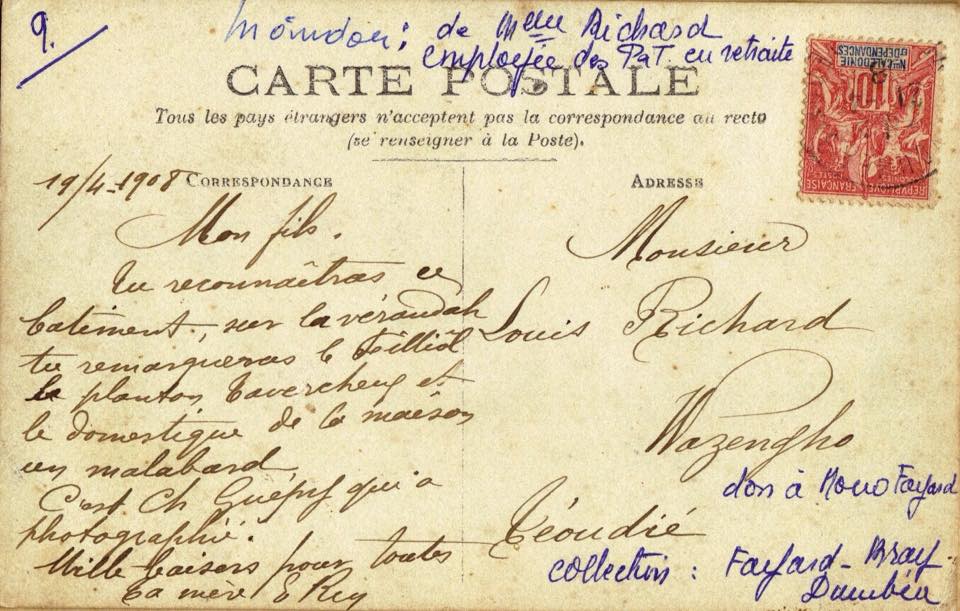 9.
Moindou : de Mme Richard
employée des P&T. en retraite
CARTE POSTALE
Tous les pays étrangers n'acceptent pas la correspondance au recto
(se renseigner à la Poste).
Nlle CALÉDONIE
ET DÉPENDANCES
10
RÉPUBLIQUE FRANÇAISE
19/4-1908
CORRESPONDANCE
Mon fils.
Tu reconnaîtras ce
batiment, sur la vérandah
tu remarqueras le
le planton et
le domestique de la maison
un malabard
C'est Ch Guépy qui a
photographié.
Mille baisers pour toutes
Ta mère E Rey
ADRESSE
Monsieur
Louis Richard
Wazengho
Téoudié
don à Fayard
collection : Fayard - Bray -
Dumbéa